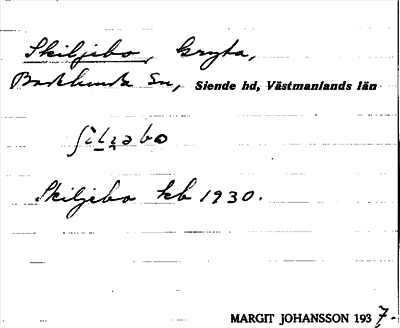 Skiljebo, Gryta,
Badelunda Sn, Siende hd, Västmanlands län
ʃìlɟabo
Skiljebo kb 1930.
MARGIT JOHANSSON 1937.